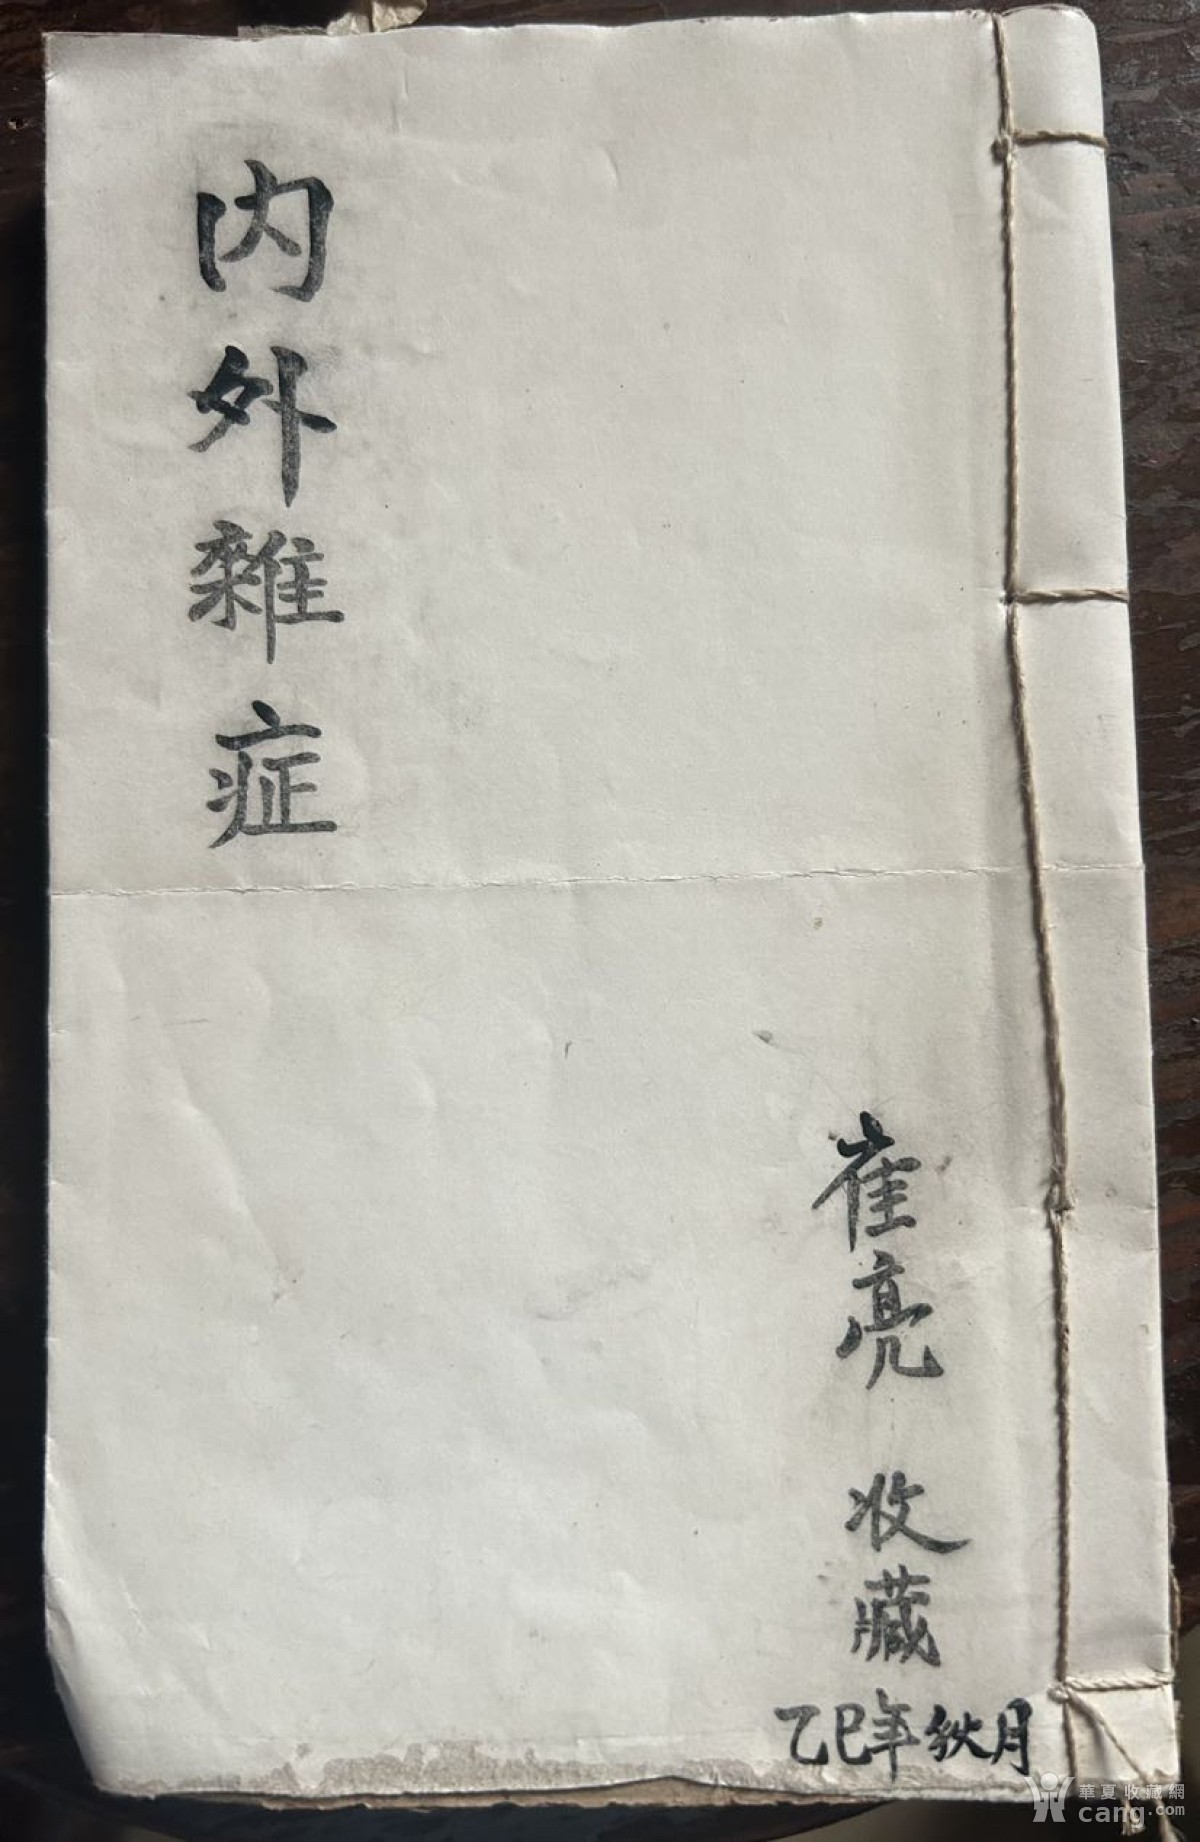 内外雜症
崔亮 收藏
乙巳年秋月
華夏收藏網
cang.com